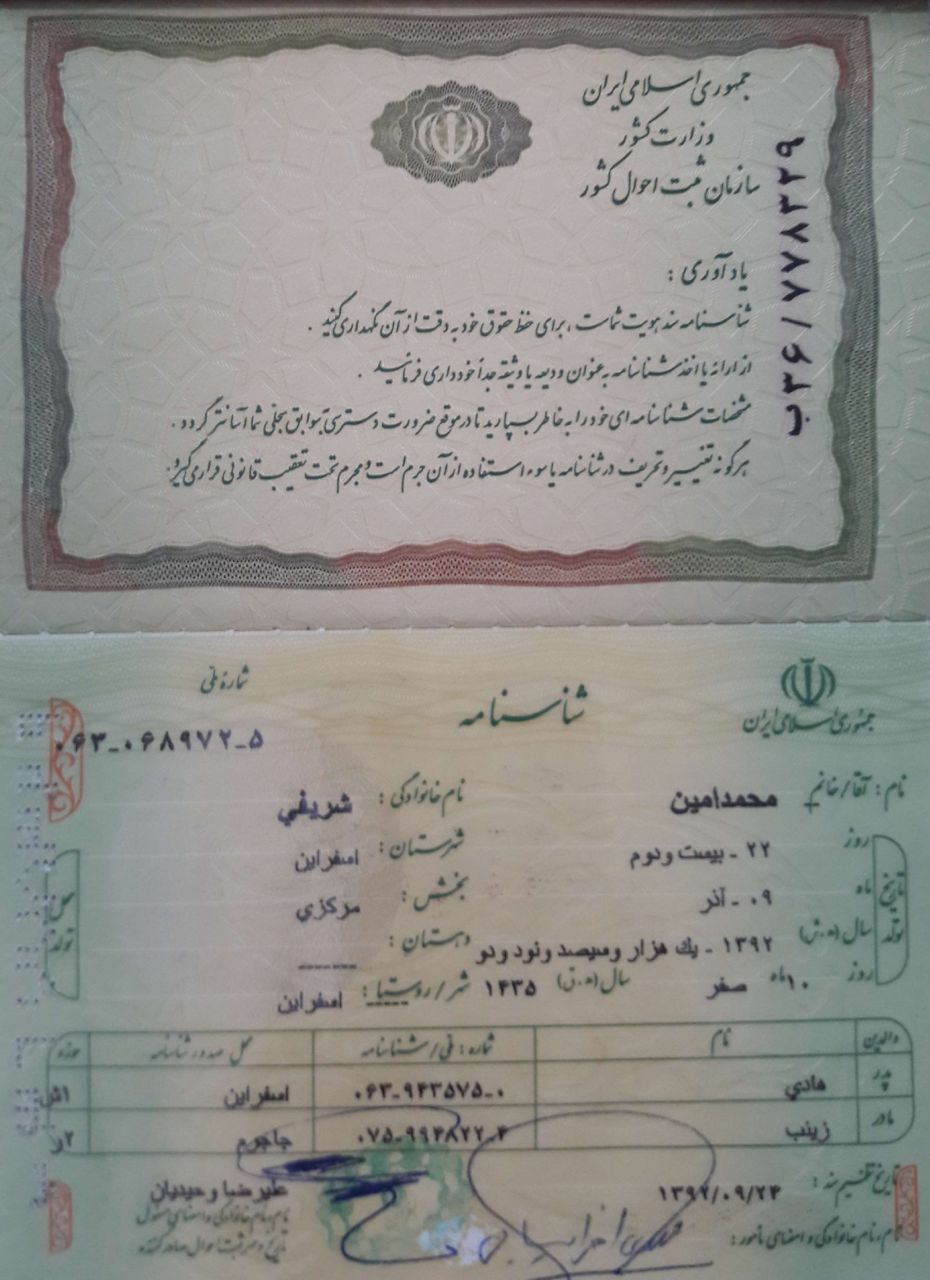 جمهوری اسلامی ایران
وزارت کشور
سازمان ثبت احوال کشور
ب۳۶/۷۷۸۳۲۹
یادآوری :
شناسنامه سند هویت شماست ، برای حفظ حقوق خود به دقت از آن نگهداری کنید .
از ارائه یا اخذ شناسنامه به عنوان ودیعه یا وثیقه جداً خودداری فرمائید .
مشخصات شناسنامه ای خود را به خاطر بسپارید تا در موقع ضرورت دسترسی به سوابق سجلی شما آسانتر گردد .
هر گونه تغییر و تحریف در شناسنامه یا سوء استفاده از آن جرم است و مجرم تحت تعقیب قانونی قرار می گیرد .
جمهوری اسلامی ایران
شناسنامه
شماره ملی
۰۶۳-۰۶۸۹۷۲-۵
نام : آقا/خانم محمدامین نام خانوادگی : شريفي
تاریخ تولد
روز ۲۲ - بیست ودوم شهرستان : اسفراین
ماه ۰۹ - آذر بخش : مركزي
سال (ه.ش) ۱۳۹۲ - يك هزار وسیصد ونود ودو دهستان : ------
روز ۱۰ ماه صفر سال (ه.ق) ۱۴۳۵ شهر/روستا : اسفراین
محل تولد
والدین نام شماره : ملی/شناسنامه محل صدور شناسنامه حوزه
پدر هادي ۰۶۳-۹۴۳۵۷۵-۰ اسفراین
مادر زینب ۰۷۵-۹۹۴۸۲۲-۴ جاجرم
تاریخ تنظیم سند : ۱۳۹۲/۰۹/۲۴ علیرضا وحیدیان
نام، نام خانوادگی و امضای مأمور : نام، نام خانوادگی و امضای مسئول
تاریخ و مهر ثبت احوال صادر کننده